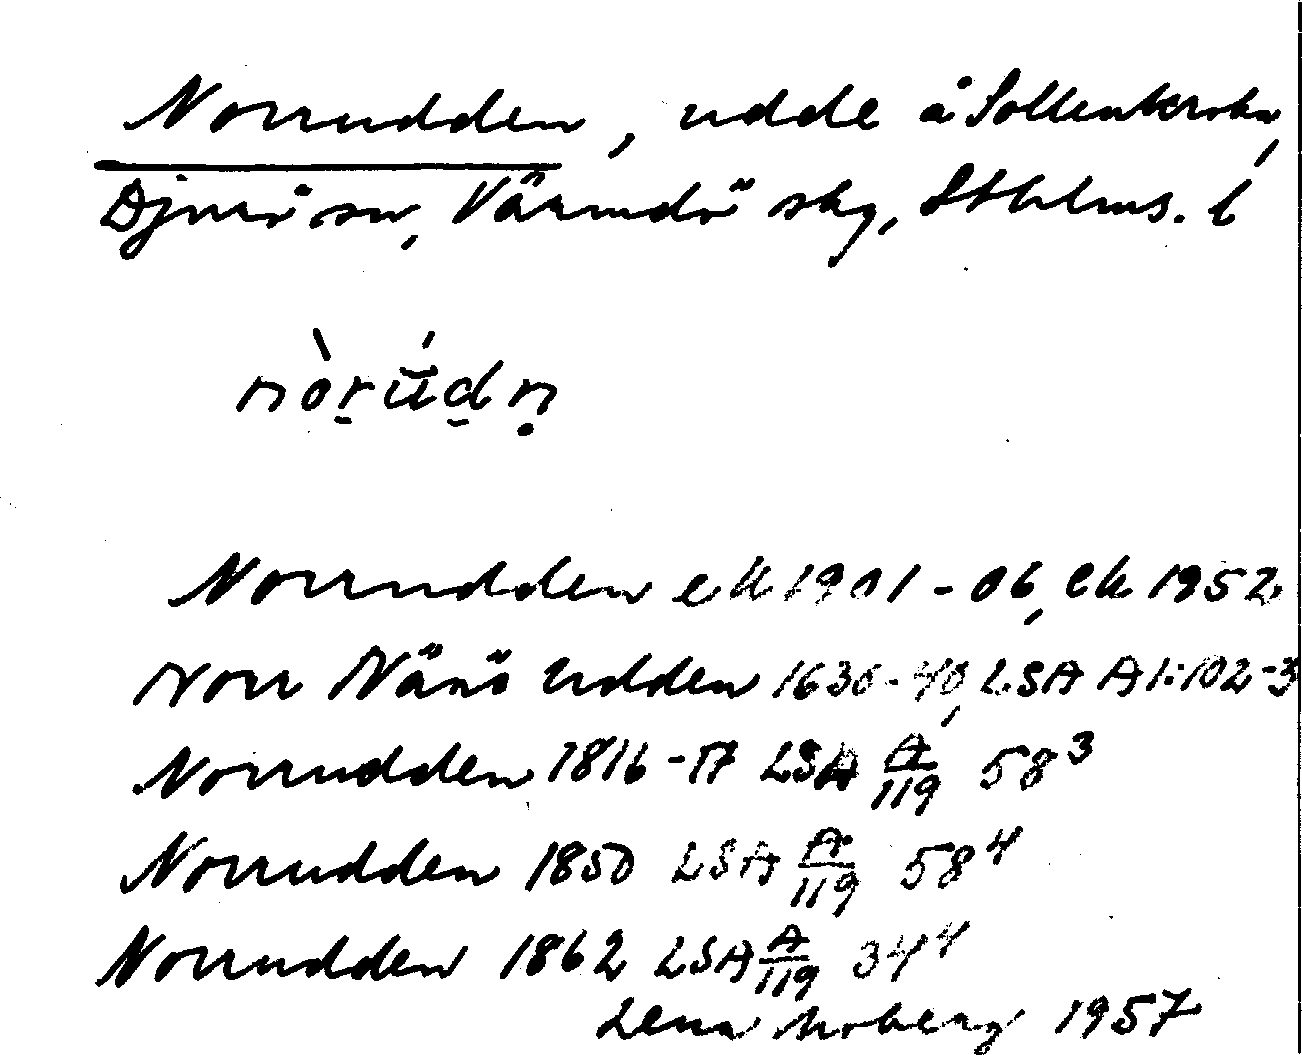 Norrudden, udde å Sollenkroka,
Djurö sn, Värmdö skg, Sthlms. l
nòrúdn
Norrudden ek 1901-06, ek 1952
Norr Nänö Udden 1636-40, LSA A1:102-3
Norrudden 1816-17 LSA A/119 58³
Norrudden 1850 LSA A/119 58⁴
Norrudden 1862 LSA A/119 34⁴
Lena Moberg 1957